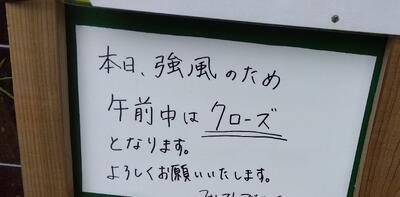 本日、強風のため
午前中はクローズ
となります。
よろしくお願いいたします。